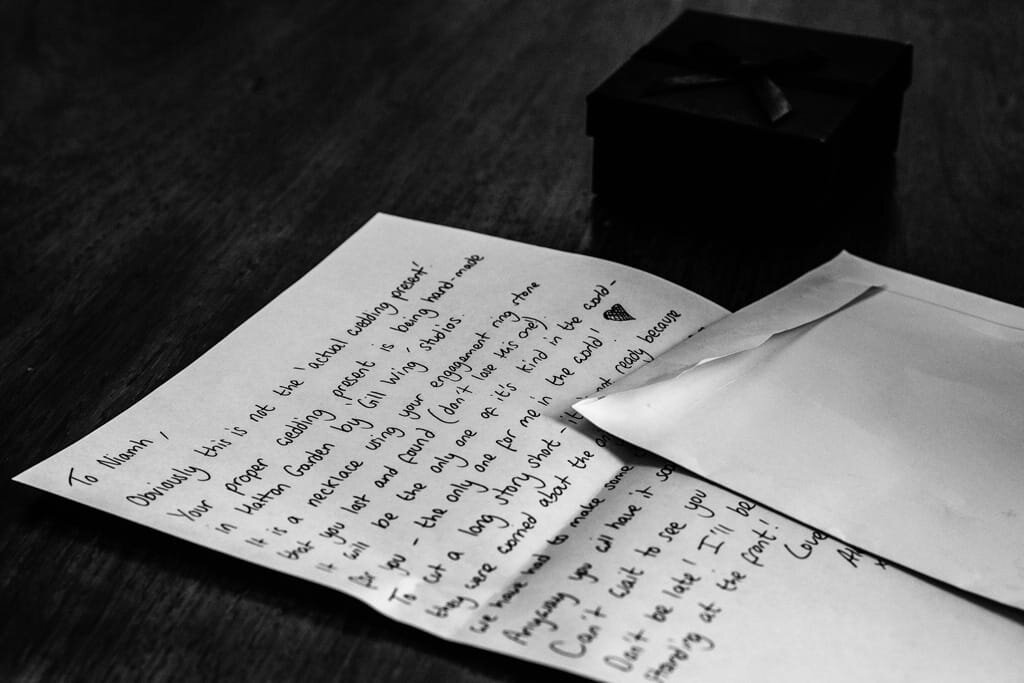 To Niamh,
Obviously this is not the 'actual wedding present'
Your proper wedding present is being hand-made
in Hatton Garden by 'Gill Wing' studios.
It is a necklace using your engagement ring stone
that you lost and found (don't lose this one)
It will be the only one of it's kind in the world -
for you - the only one for me in the world! ♥
To cut a long story short - not ready because
they were worried about the
we have had to make some
Anyway you will have it
Can't wait to see you
Don't be late! I'll be
standing at the front!
Love